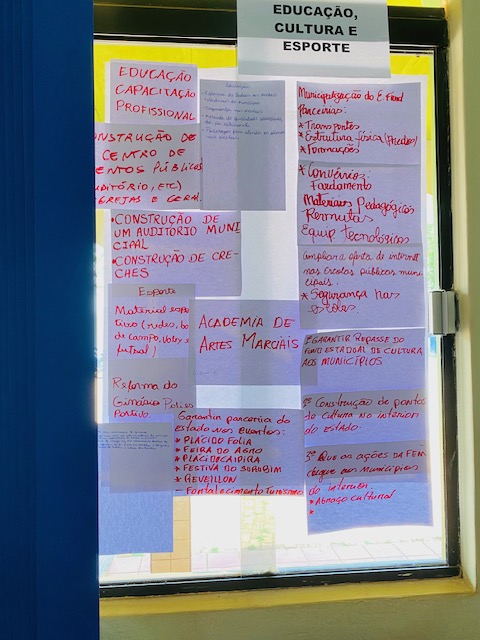 EDUCAÇÃO,
CULTURA E
ESPORTE
EDUCAÇÃO
CAPACITAÇÃO
PROFISSIONAL
NSTRUÇÃO DE
CENTRO DE
ENTOS PÚBLICOS
DITÓRIO, ETC)
GREJAS E GERAL.
• CONSTRUÇÃO DE
UM AUDITÓRIO MUNI
CIPAL
• CONSTRUÇÃO DE CRE-
CHES
Esporte
Material espor
tivo (redes, bo
de campo, volei e
futsal)
Reforma do
Ginásio Polies
portivo.
ACADEMIA DE
ARTES MARCIAIS
Garantir parceria do
estado nos eventos:
* PLÁCIDO FOLIA
* FEIRA DO AGRO
* PLACIDCAIPIRA
* FESTIVA DO SURUBIM
* REVEILLON
- Fortalecimento Turismo
Municipalização do E. Fund
Parcerias:
* Transportes
* Estrutura física (Prédios)
* Formações
* Convênios:
Fardamento
Materiais Pedagógicos
Permutas
Equip tecnológicos
Ampliar a oferta de internet
nas Escolas públicas muni
cipais.
* Segurança nas
escolas.
1º GARANTIR REPASSE DO
FUNDO ESTADUAL DE CULTURA
AOS MUNICÍPIOS
2º Construção de pontos
de cultura no interior
do estado.
3º Que as ações da FEM
chegue aos Municípios
do interior.
* Abraço Cultural
*